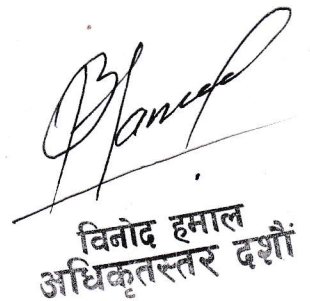 विनोद हमाल
अधिकृतस्तर दशौं